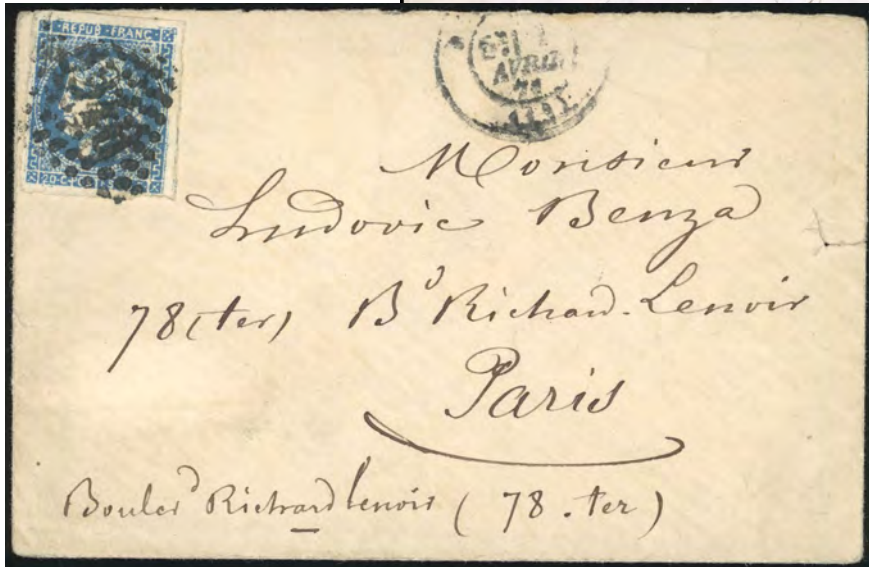 REPUB · FRANC
20 · C
AVRIL
71
Monsieur
Ludovic Benza
78 (ter) Bd Richard-Lenoir
Paris
Bouled Richard Lenoir (78. ter)